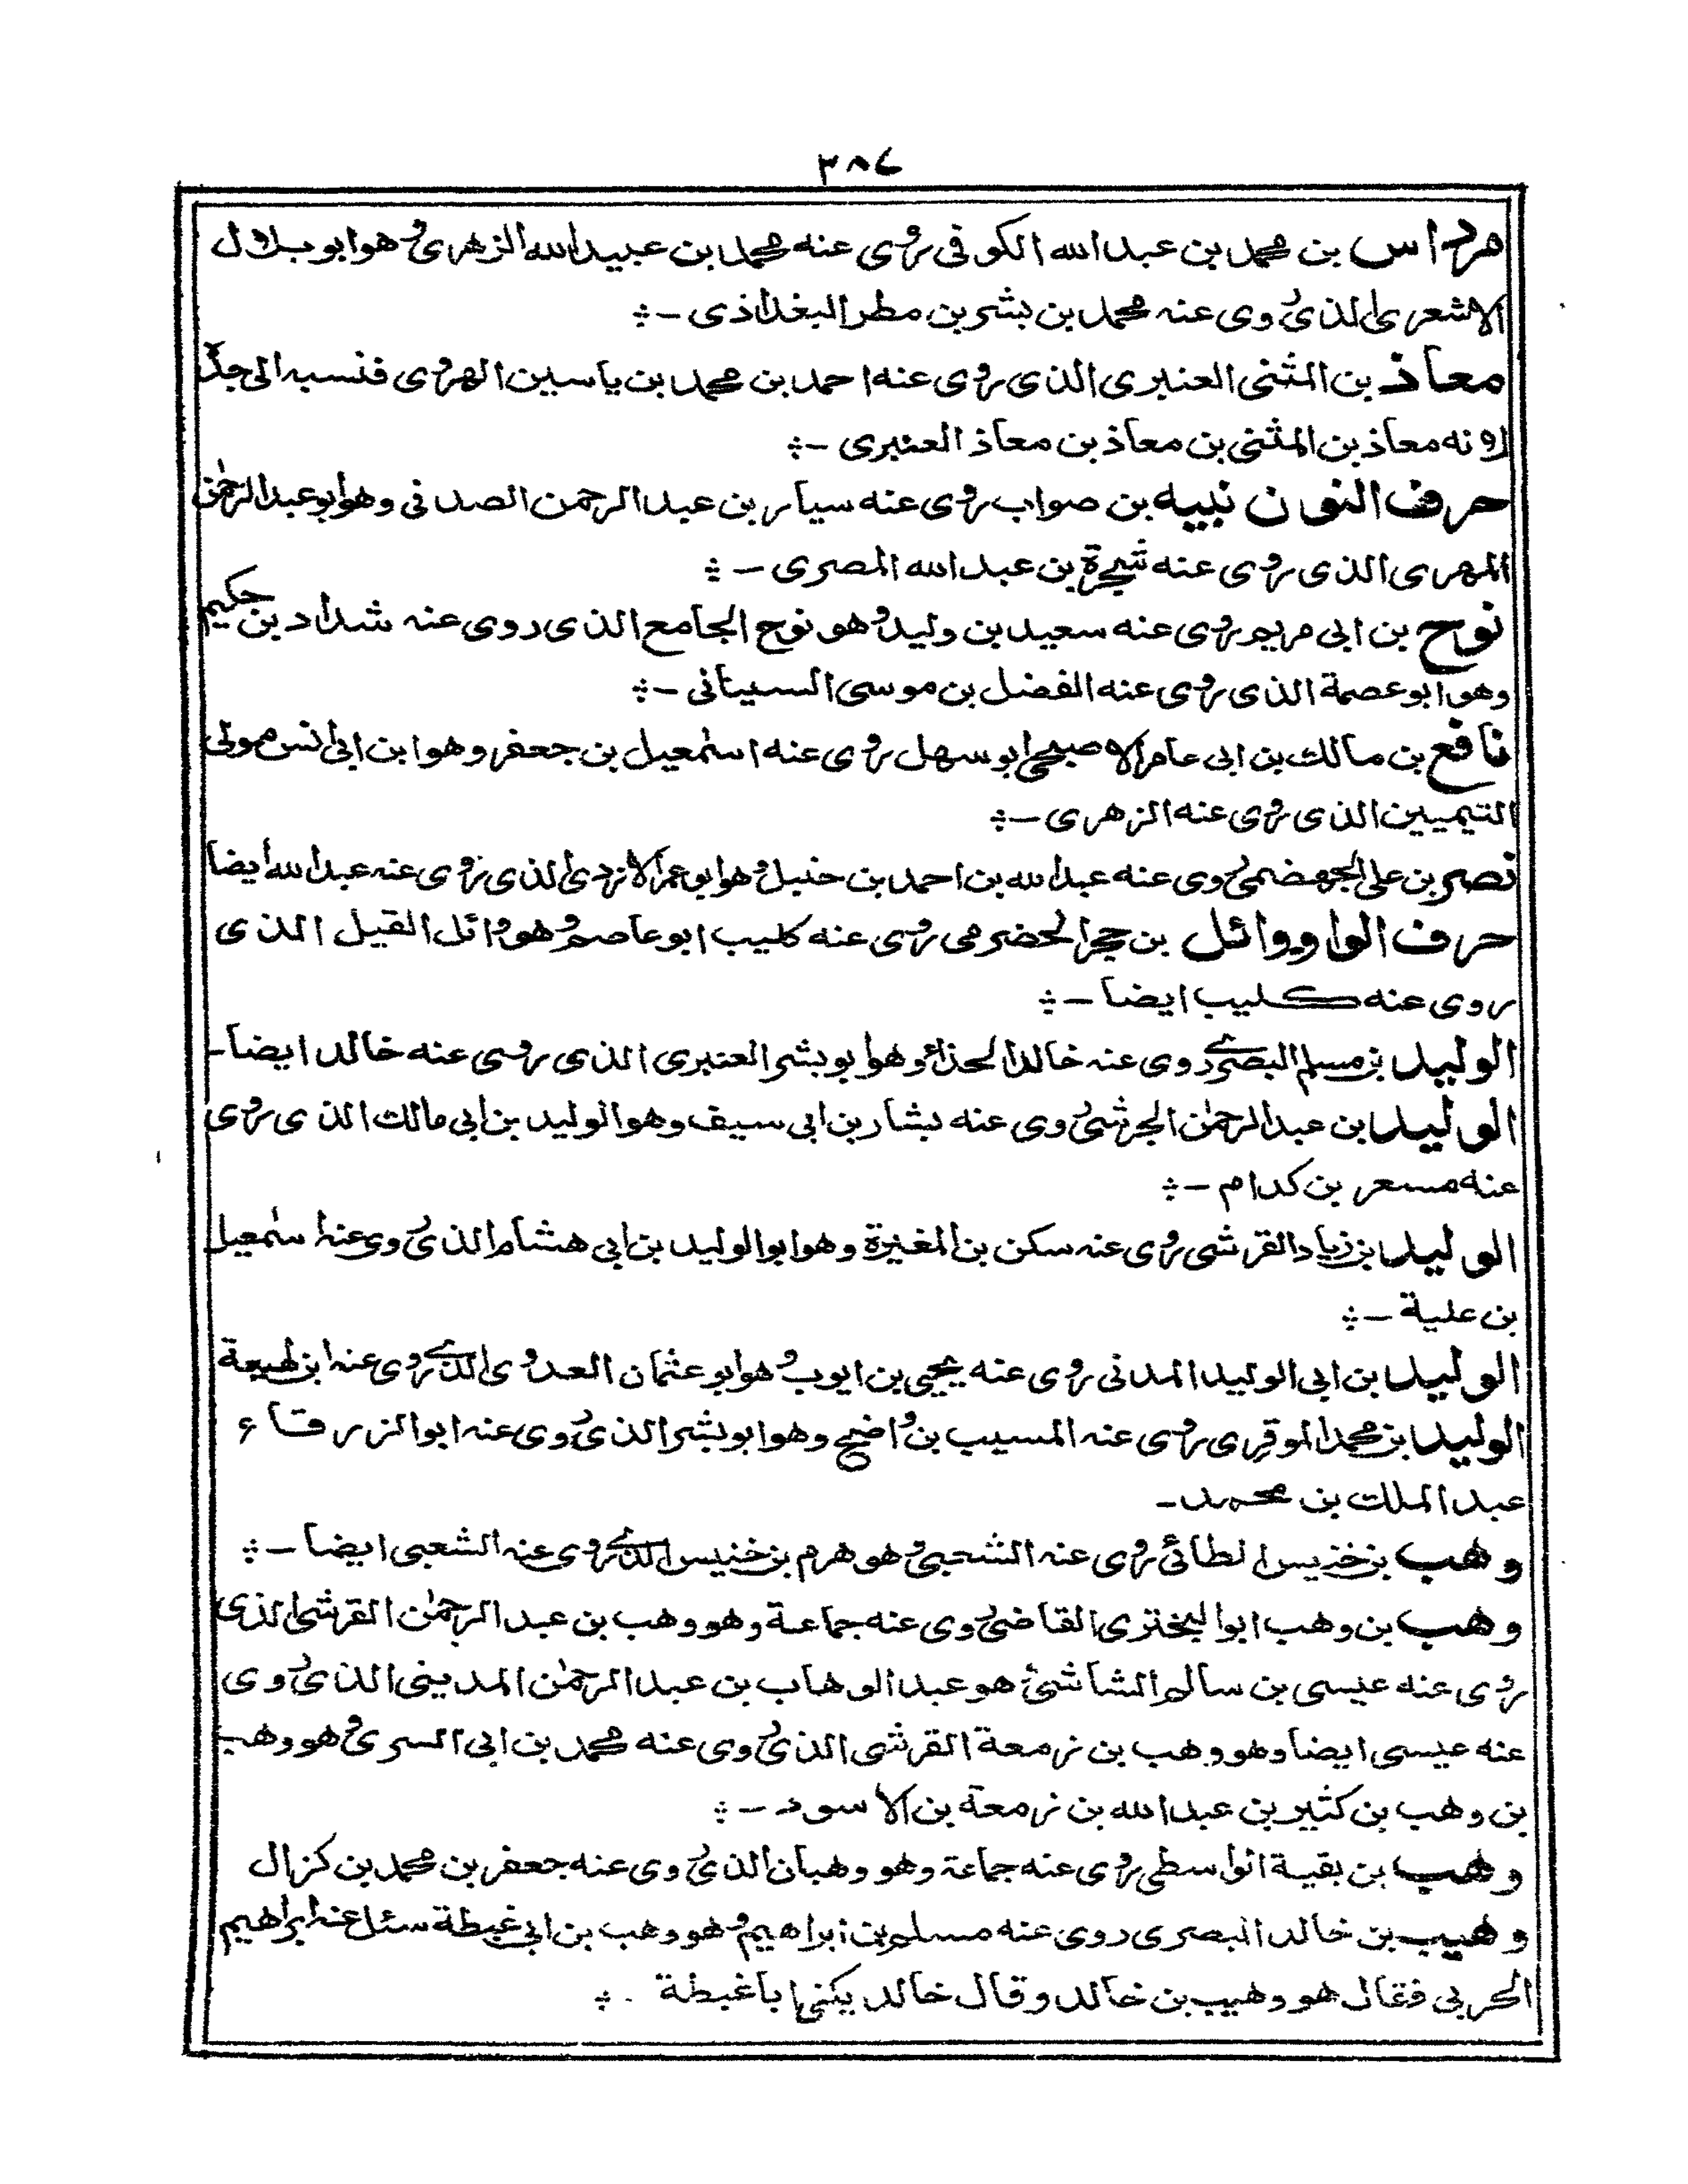 ٣٨٧
مرداس بن محمد بن عبد الله الكوفى روى عنه محمد بن عبيد الله الزهرى وهو ابو بلال
الاشعرى الذى روى عنه محمد بن بشر بن مطر البغداذى -
معاذ بن المثنى العنبرى الذى روى عنه احمد بن محمد بن ياسين الهروى فنسبه الى جده
لانه معاذ بن المثنى بن معاذ بن معاذ العنبرى -
حرف النون نبيه بن صواب روى عنه سيار بن عبد الرحمن الصدفى وهو ابو عبد الرحمٰن
المهرى الذى روى عنه شجرة بن عبد الله المصرى -
نوح بن ابى مريم روى عنه سعيد بن وليد وهو نوح الجامع الذى روى عنه شداد بن حكيم
وهو ابو عصمة الذى روى عنه الفضل بن موسى السينانى -
نافع بن مالك بن ابى عامر الاصبحى ابو سهل روى عنه اسمٰعيل بن جعفر وهو ابن ابى انس مولى
التيميين الذى روى عنه الزهرى -
نصر بن على الجهضمى روى عنه عبد الله بن احمد بن حنبل وهو ابو عمر الازدى الذى روى عنه عبد الله ايضا
حرف الواو وائل بن حجر الحضرمى روى عنه كليب ابو عاصم وهو وائل القيل الذى
روى عنه كليب ايضا -
الوليد بن مسلم البصرى روى عنه خالد الحذاء وهو ابو بشر العنبرى الذى روى عنه خالد ايضا -
الوليد بن عبد الرحمٰن الجرشى روى عنه بشار بن ابى سيف وهو الوليد بن ابى مالك الذى روى
عنه مسعر بن كدام -
الوليد بن زياد القرشى روى عنه سكن بن المغيرة وهو ابو الوليد بن ابى هشام الذى روى عنه اسمٰعيل
بن علية -
الوليد بن ابى الوليد المدنى روى عنه يحيى بن ايوب وهو ابو عثمان العدوى الذى روى عنه ابن لهيعة
الوليد بن محمد الموقرى روى عنه المسيب بن واضح وهو ابو بشر الذى روى عنه ابو الزرقاء
عبد الملك بن محمد -
وهب بن خنيس الطائى روى عنه الشعبى وهو هرم بن خنيس الذى روى عنه الشعبى ايضا -
وهب بن وهب ابو البختزى القاضى روى عنه جماعة وهو وهب بن عبد الرحمٰن القرشى الذى
روى عنه عيسى بن سالم الشاشى وهو عبد الوهاب بن عبد الرحمٰن المدينى الذى روى
عنه عيسى ايضا وهو وهب بن زمعة القرشى الذى روى عنه محمد بن ابى السرى وهو وهب
بن وهب بن كثير بن عبد الله بن زمعة بن الاسود -
وهب بن بقية الواسطى روى عنه جماعة وهو وهبان الذى روى عنه جعفر بن محمد بن كزال
وهيب بن خالد البصرى روى عنه مسلم بن ابراهيم وهو وهب بن ابى غبطة سئل عنه ابراهيم
الحربى فقال هو وهيب بن خالد وقال خالد يكنى ابا غبطة